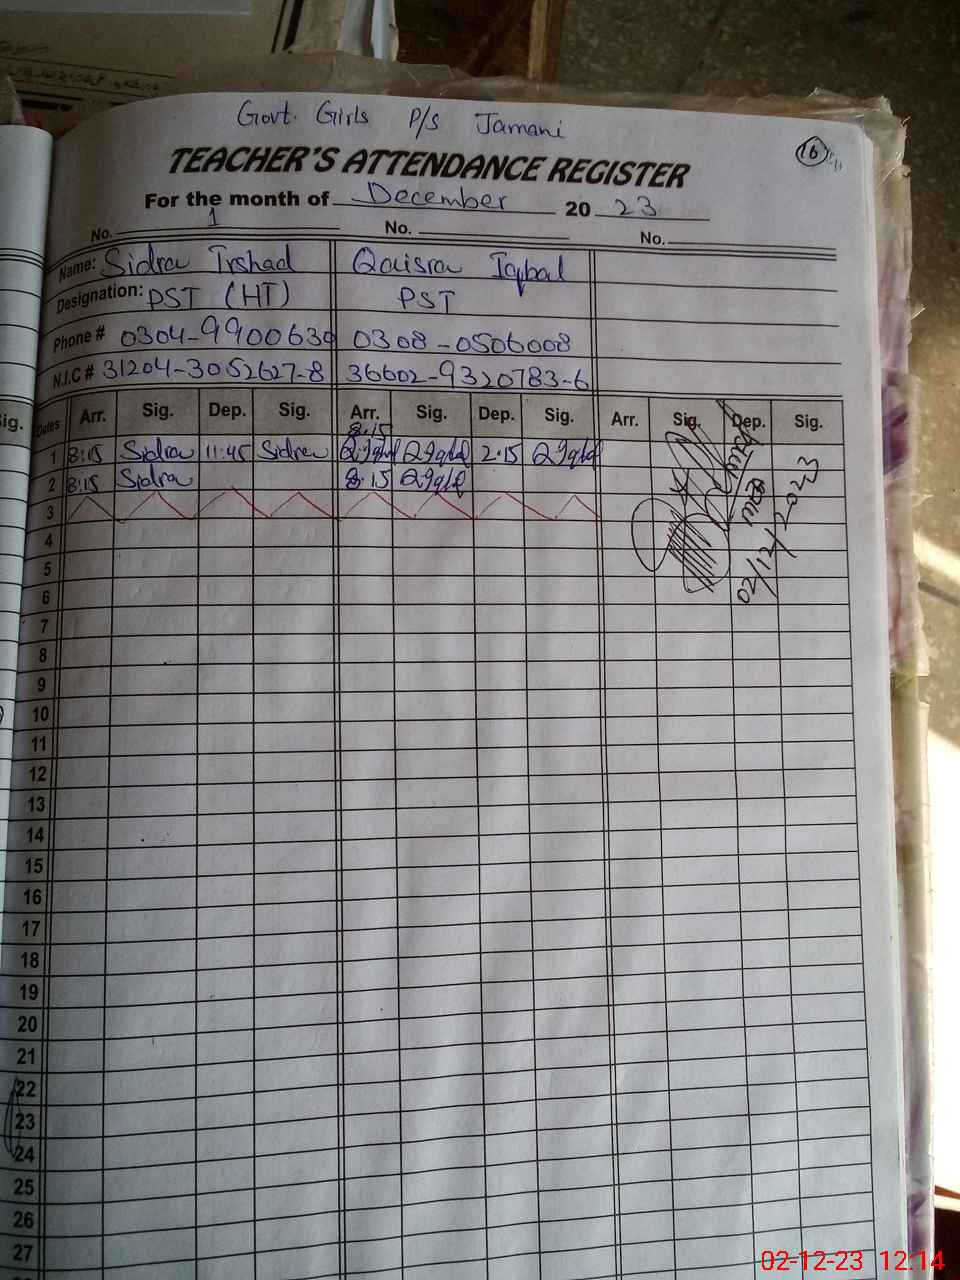 Govt. Girls P/S Jamani
16
TEACHER'S ATTENDANCE REGISTER
For the month of December 20 23
No. 1 No. No.
Name: Sidra Irshad Qaisra Iqbal
Designation: PST (HT) PST
Phone # 0304-9900630 0308-0506008
N.I.C # 31204-30152627-8 36602-9320783-6
Sig. Dates Arr. Sig. Dep. Sig. Arr. Sig. Dep. Sig. Arr. Sig. Dep. Sig.
8:15
1 8:15 Sidra 11:45 Sidra Q.Iqbal Q Iqbal 2:15 Q Iqbal
2 8:15 Sidra 8:15 Q Iqbal
3
4
5
6
7
8
9
10
11
12
13
14
15
16
17
18
19
20
21
22
23
24
25
26
27
02/12/2023
02-12-23 12:14